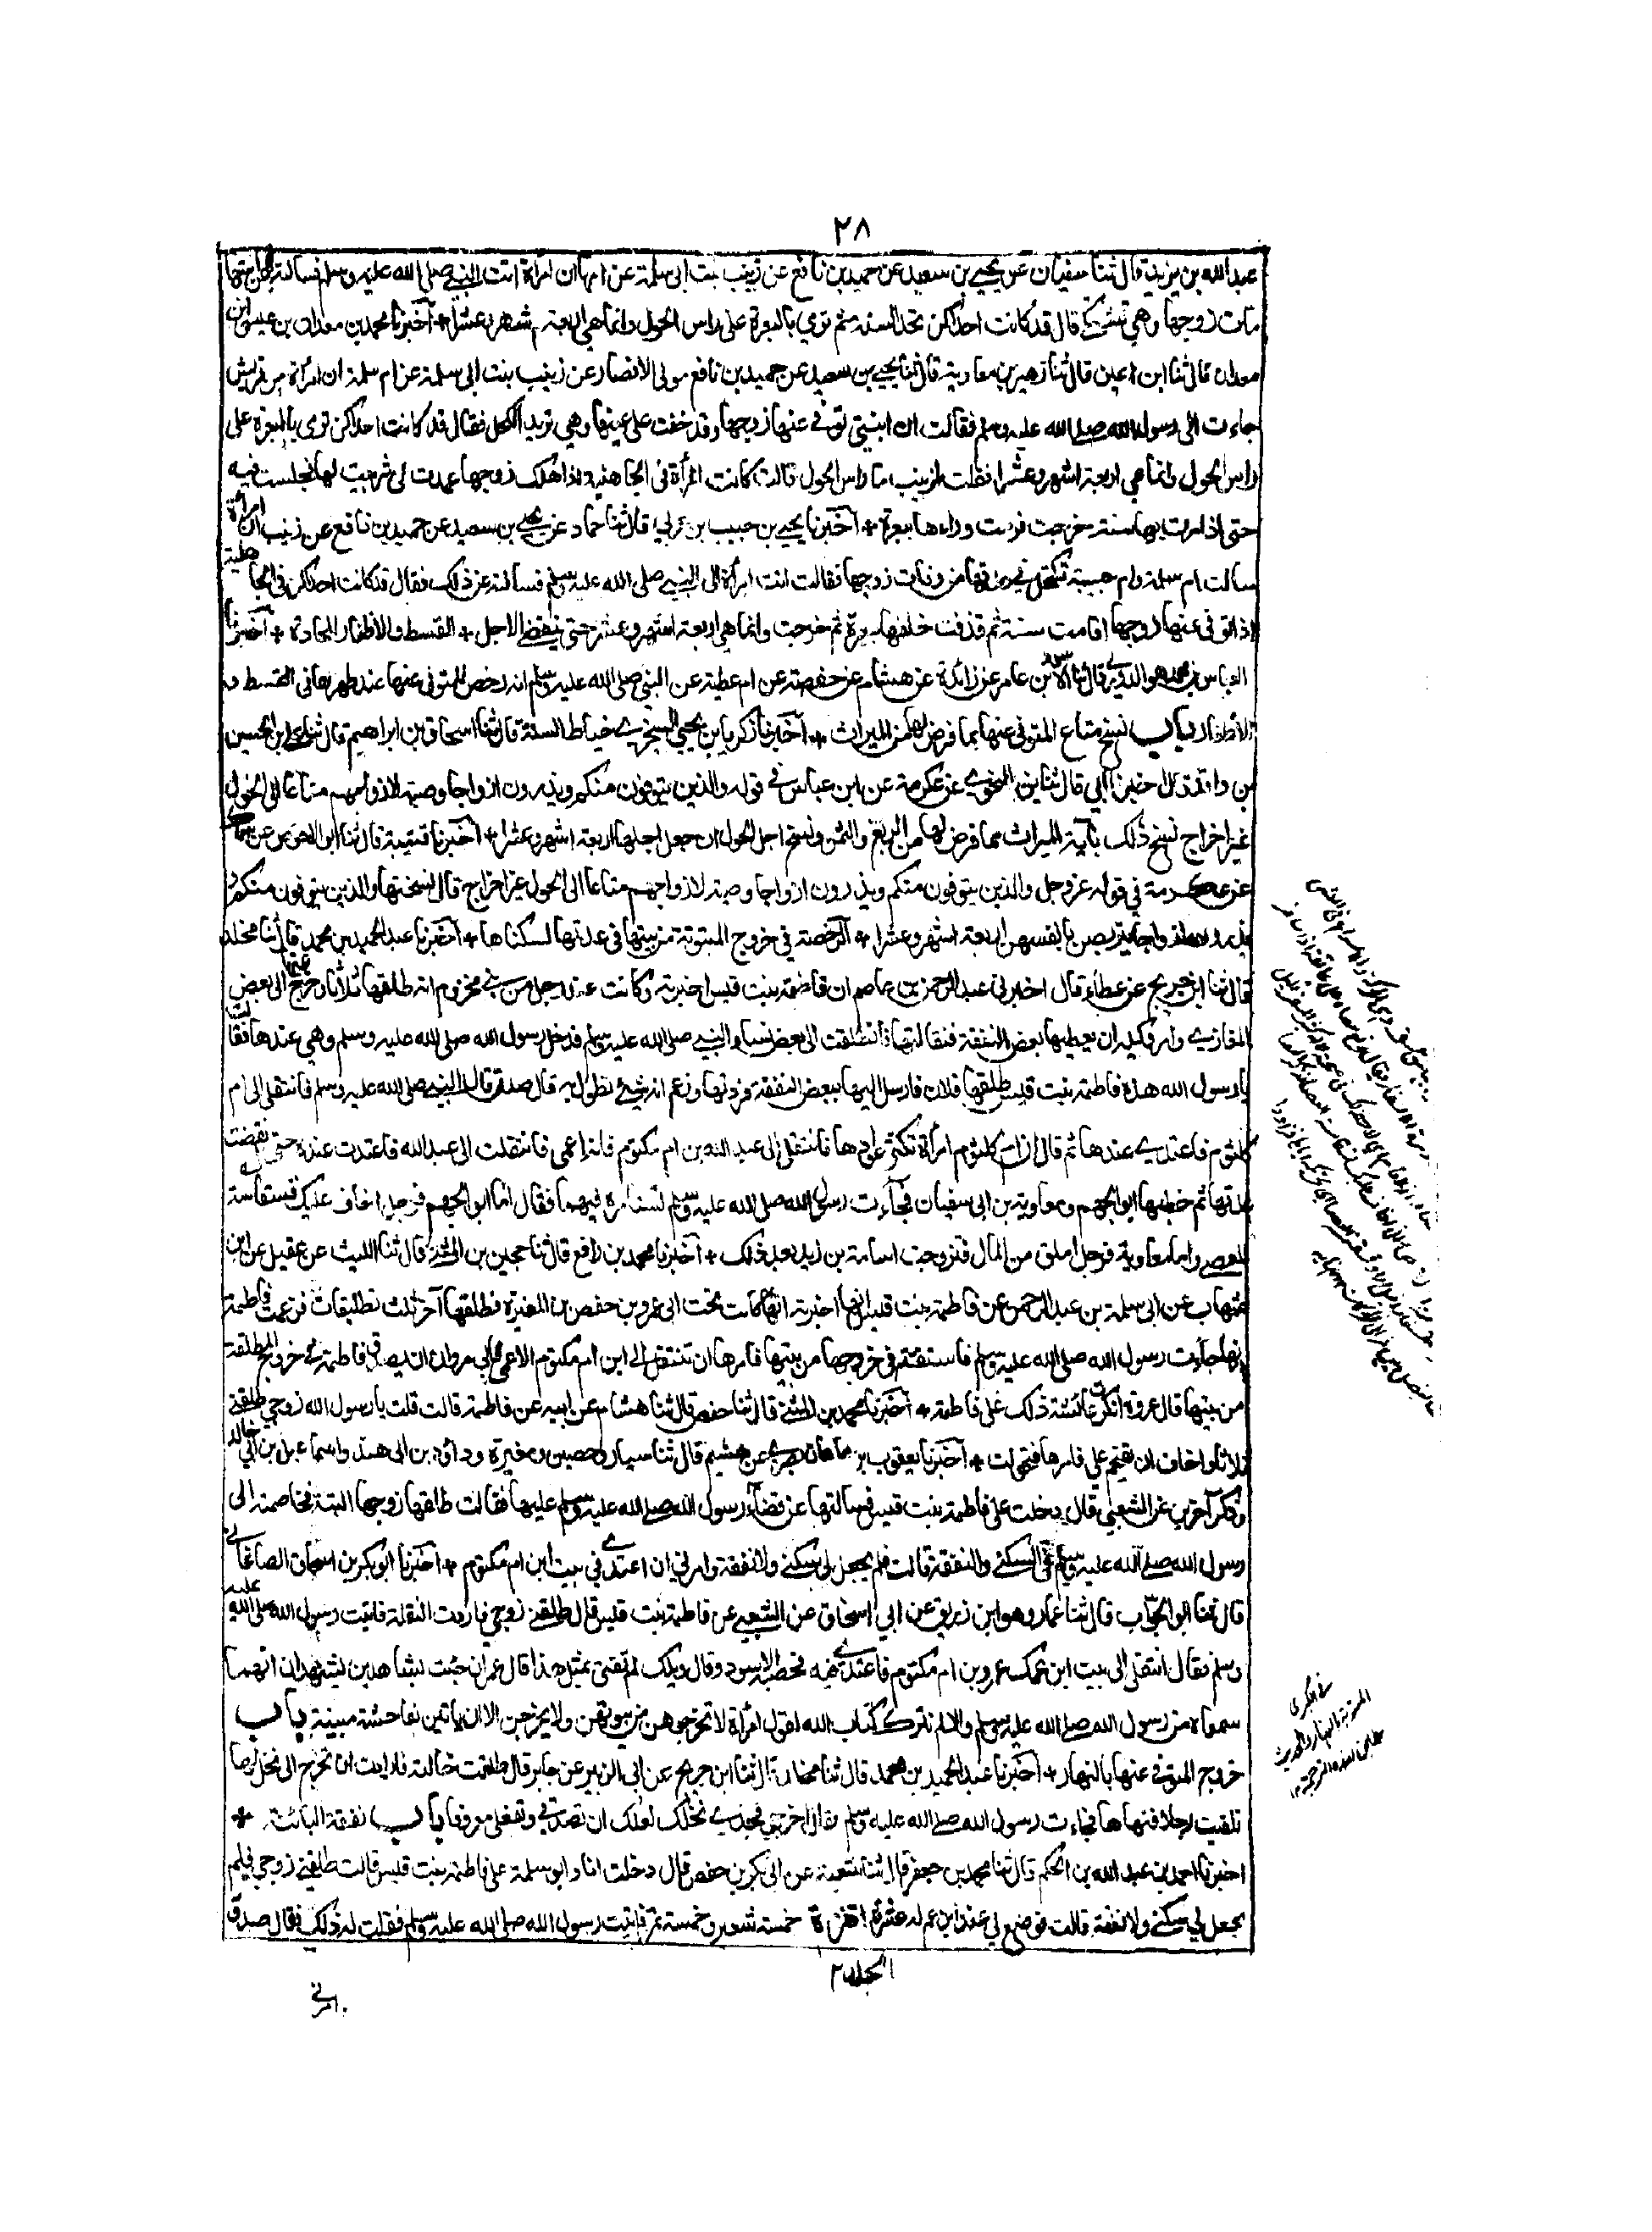 ٢٨
عبد الله بن يزيد قال ثنا سفيان عن يحيى بن سعيد عن حميد بن نافع عن زينب بنت ابى سلمة عن امها ان امرأة اتت النبي صلى الله عليه وسلم فسالته عن ابنتها
مات زوجها وهي تشتكي قال قد كانت احداكن تحد السنة ثم ترمي بالبعرة على راس الحول وانما هي اربعة اشهر وعشرا + أخبرنا محمد بن معدان بن عيسى ابن
معدان قال ثنا ابن اعين قال ثنا زهير بن معاوية قال ثنا يحيى بن سعيد عن حميد بن نافع مولى الانصار عن زينب بنت ابى سلمة عن ام سلمة ان امرأة من قريش
جاءت الى رسول الله صلى الله عليه وسلم فقالت ان ابنتي توفي عنها زوجها وقد خفت على عينها وهي تريد الكحل فقال قد كانت احداكن ترمى بالبعرة على
راس الحول وانما هي اربعة اشهر وعشرا فقلت لزينب ما راس الحول قالت كانت المرأة فى الجاهلية اذا هلك زوجها عمدت الى شر بيت لها فجلست فيه
حتى اذا مرت بها سنة خرجت فرمت وراءها ببعرة + أخبرنا يحيى بن حبيب بن عربي قال ثنا حماد عن يحيى بن سعيد عن حميد بن نافع عن زينب ان امرأة
سالت ام سلمة وام حبيبة تكتحل في عدتها من وفات زوجها فقالت اتت امرأة الى النبي صلى الله عليه وسلم فسالته عن ذلك فقال قد كانت احداكن فى الجاهلية
اذا توفى عنها زوجها اقامت سنة ثم قذفت خلفها ببعرة ثم خرجت وانما هي اربعة اشهر وعشر حتى ينقضي الاجل + القسط والاظفار للحادة + أخبرنا
العباس بن محمد هو الدوري قال ثنا الاسود بن عامر عن زائدة عن هشام عن حفصة عن ام عطية عن النبي صلى الله عليه وسلم انه رخص للمتوفى عنها عند طهرها فى القسط و
الاظفار باب نسخ متاع المتوفى عنها بما فرض لها من الميراث + أخبرنا زكريا بن يحيى السجزي خياط السنة قال ثنا اسحاق بن ابراهيم قال ثنا علي ابن الحسين
بن واقد قال اخبرنا أبي قال ثنا يزيد النحوي عن عكرمة عن ابن عباس في قوله والذين يتوفون منكم ويذرون ازواجا وصية لازواجهم متاعا الى الحول
غير اخراج نسخ ذلك بآية الميراث مما فرض لها من الربع والثمن ونسخ اجل الحول ان جعل اجلها اربعة اشهر وعشرا + أخبرنا قتيبة قال ثنا ابو الاحوص عن سماك
عن عكرمة في قوله عز وجل والذين يتوفون منكم ويذرون ازواجا وصية لازواجهم متاعا الى الحول غير اخراج قال نسختها والذين يتوفون منكم و
يذرون ازواجا يتربصن بانفسهن اربعة اشهر وعشرا + الرخصة في خروج المبتوتة من بيتها فى عدتها لسكناها + أخبرنا عبد الحميد بن محمد قال ثنا مخلد
قال ثنا ابن جريج عن عطاء قال اخبرني عبد الرحمن بن عاصم ان فاطمة بنت قيس اخبرته وكانت عند رجل من بني مخزوم انه طلقها ثلاثا وخرج الى بعض
المغازي وامر وكيله ان يعطيها بعض النفقة فتقالتها فانطلقت الى بعض نساء النبي صلى الله عليه وسلم فدخل رسول الله صلى الله عليه وسلم وهي عندها فقالت
يا رسول الله هذه فاطمة بنت قيس طلقها فلان فارسل اليها ببعض النفقة فردتها وزعم انه شيء تطول به قال صدق قال النبي صلى الله عليه وسلم فانتقلي الى ام
كلثوم فاعتدي عندها ثم قال ان ام كلثوم امرأة تكثر عوادها فانتقلي الى عبد الله بن ام مكتوم فانه اعمى فانتقلت الى عبد الله فاعتدت عنده حتى انقضت
عدتها ثم خطبها ابو الجهم ومعاوية بن ابى سفيان فجاءت رسول الله صلى الله عليه وسلم تستامره فيهما فقال اما ابو الجهم فرجل اخاف عليك قسقاسته
للعصا واما معاوية فرجل املق من المال فتزوجت اسامة بن زيد بعد ذلك + أخبرنا محمد بن رافع قال ثنا حجين بن المثنى قال ثنا الليث عن عقيل عن ابن
شهاب عن ابى سلمة بن عبد الرحمن عن فاطمة بنت قيس انها اخبرته انها كانت تحت ابى عمرو بن حفص بن المغيرة فطلقها آخر ثلث تطليقات فزعمت فاطمة
انها جاءت رسول الله صلى الله عليه وسلم فاستفتته في خروجها من بيتها فامرها ان تنتقل الى ابن ام مكتوم الاعمى فابى مروان ان يصدق فاطمة في خروج المطلقة
من بيتها قال عروة انكرت عائشة ذلك على فاطمة + أخبرنا محمد بن المثنى قال ثنا حفص قال ثنا هشام عن ابيه عن فاطمة قالت قلت يا رسول الله زوجي طلقني
ثلاثا واخاف ان يقتحم علي فامرها فتحولت + أخبرنا يعقوب بن ماهان بصري عن هشيم قال ثنا سيار وحصين ومغيرة وداؤد بن ابى هند واسماعيل بن ابي خالد
وذكر آخرين عن الشعبي قال دخلت على فاطمة بنت قيس فسالتها عن قضاء رسول الله صلى الله عليه وسلم عليها فقالت طلقها زوجها البتة فخاصمته الى
رسول الله صلى الله عليه وسلم في السكنى والنفقة قالت فلم يجعل لى سكنى ولا نفقة وامرني ان اعتد في بيت ابن ام مكتوم + أخبرنا ابو بكر بن اسحاق الصاغاني
قال ثنا ابو الجواب قال ثنا عمار وهو ابن زريق عن ابي اسحاق عن الشعبي عن فاطمة بنت قيس قال طلقني زوجي فاردت النقلة فاتيت رسول الله صلى الله عليه
وسلم فقال انتقلى الى بيت ابن عمك عمرو بن ام مكتوم فاعتدي فيه فحصبه الاسود وقال ويلك لم تفتي بمثل هذا قال عمر ان جئت بشاهدين يشهدان انهما
سمعاه من رسول الله صلى الله عليه وسلم والا لم نترك كتاب الله لقول امرأة لا تخرجوهن من بيوتهن ولا يخرجن الا ان ياتين بفاحشة مبينة باب
خروج المتوفى عنها بالنهار + أخبرنا عبد الحميد بن محمد قال ثنا مخلد قال ثنا ابن جريج عن ابي الزبير عن جابر قال طلقت خالته فارادت ان تخرج الى نخل لها
فلقيت رجلا فنهاها فجاءت رسول الله صلى الله عليه وسلم فقال اخرجي فجدي نخلك لعلك ان تصدقي وتفعلى معروفا باب نفقة البائنة +
اخبرنا احمد بن عبد الله بن الحكم قال ثنا محمد بن جعفر قال ثنا شعبة عن ابى بكر بن حفص قال دخلت انا وابو سلمة على فاطمة بنت قيس قالت طلقني زوجي فلم
يجعل لي سكنى ولا نفقة قالت فوضع لي عند ابن عم له عشرة اقفزة خمسة شعير وخمسة تمر فاتيت رسول الله صلى الله عليه وسلم فقلت له ذلك فقال صدق
الجلد ٢